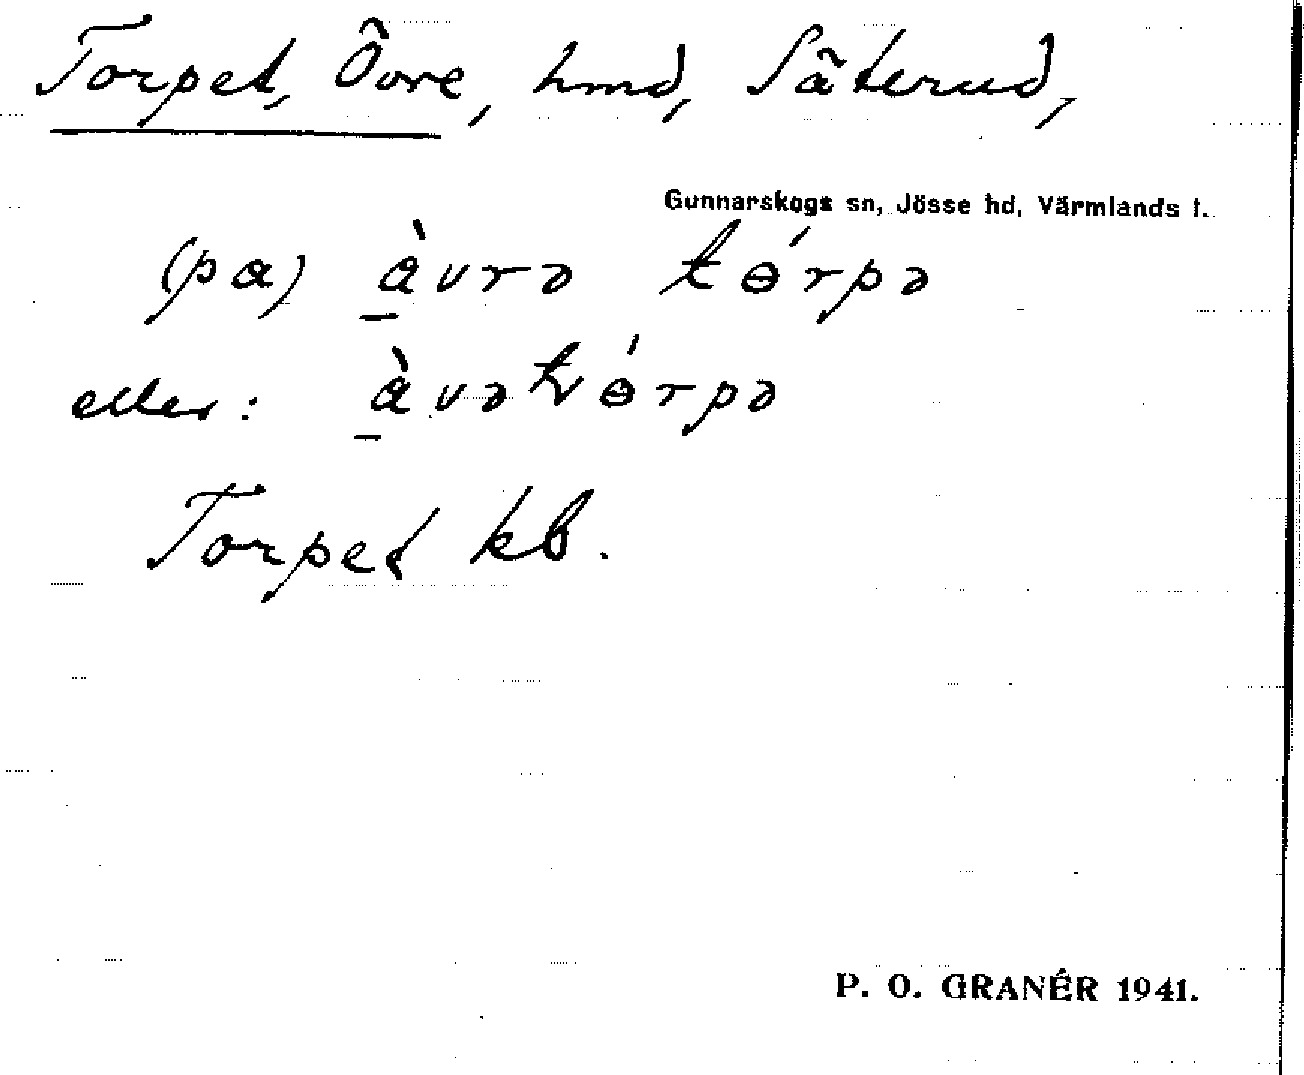 Torpet, Övre, hmd, Säterud,
Gunnarskogs sn, Jösse hd, Värmlands l.
(pa) à̠vrə tɵ́rpə
eller: à̠vətɵ́rpə
Torpet kb.
P. O. GRANÉR 1941.